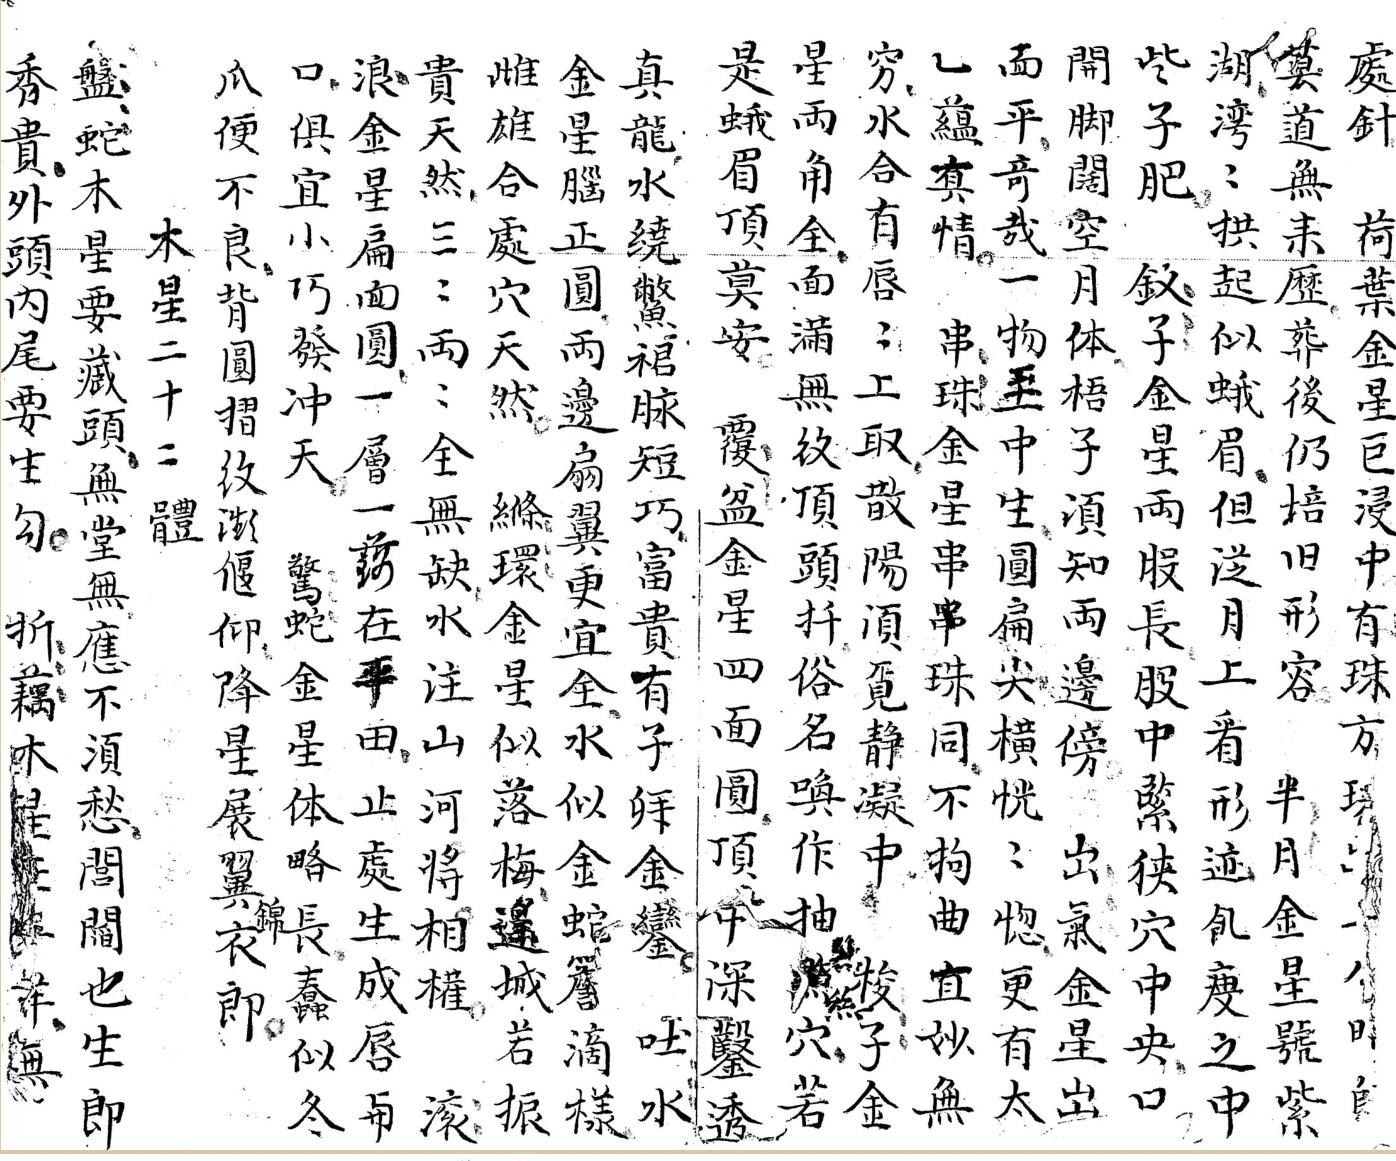 處針　荷葉金星巨浸中有珠方
莫道無来歷葬後仍培旧形容　半月金星號紫
湖湾〻拱起似蛾眉但泛月上看形迹乩庋之中
些子肥　釵子金星兩股長股中緊狹穴中央口
開脚闊空月体梧子湏知两邊傍　出氣金星出
面平竒哉一物至中生圓扁尖橫恍〻惚更有太
乙蘊真情　串珠金星串串珠同不拘曲直妙無
穷水合有唇〻上取散陽湏覓静凝中　梭子金
星两角全面满無紋頂頭扦俗名喚作抽絲穴若
是蛾眉頂莫安　覆盆金星四面圓頂中深鑿透
真龍水繞鱉裙脉短巧富貴有子孫金鑾　吐水
金星腦正圓两邊扇翼更宜全水似金蛇簷滴樣
雌雄合處穴天然　縧環金星似落梅邊城若振
貴天然三〻两〻全無缺水注山河将相權　滚
浪金星扁面圓一層一在平田止處生成唇与
口俱宜小巧發冲天　驚蛇金星体略長蠢似冬
爪便不良背圓摺紋瀜偃仰降星展翼衣錦郎
木星二十二體
盤蛇木星要蔵頭無堂無應不湏愁閭閻也生郎
秀貴外頭内尾要生勾　折藕木星無